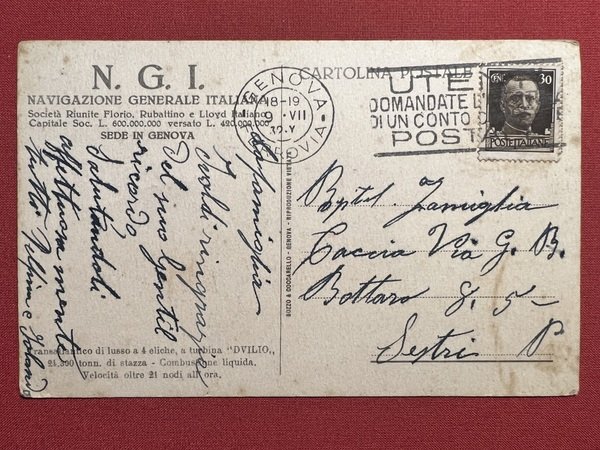 N. G. I.
NAVIGAZIONE GENERALE ITALIANA
Società Riunite Florio, Rubattino e Lloyd Italiano
Capitale Soc. L. 600.000.000 versato L. 420.000.000
SEDE IN GENOVA
La famiglia
Isoldi ringrazia
del suo gentil
ricordo
Salutandoli
affettuosamente
tutti
Transatlantico di lusso a 4 eliche, a turbina "DVILIO,,
24.300 tonn. di stazza - Combustione liquida.
Velocità oltre 21 nodi all'ora.
BOZZO & COCCARELLO - GENOVA - RIPRODUZIONE VIETATA
CARTOLINA POSTALE
GENOVA
18-19
9 · VII
32·X
FERROVIA
UTE
DOMANDATE L
DI UN CONTO C
POST
CENT. 30
POSTE ITALIANE
Famiglia
Caccia Via G. B.
Bottaro 8. 5-
Sestri P